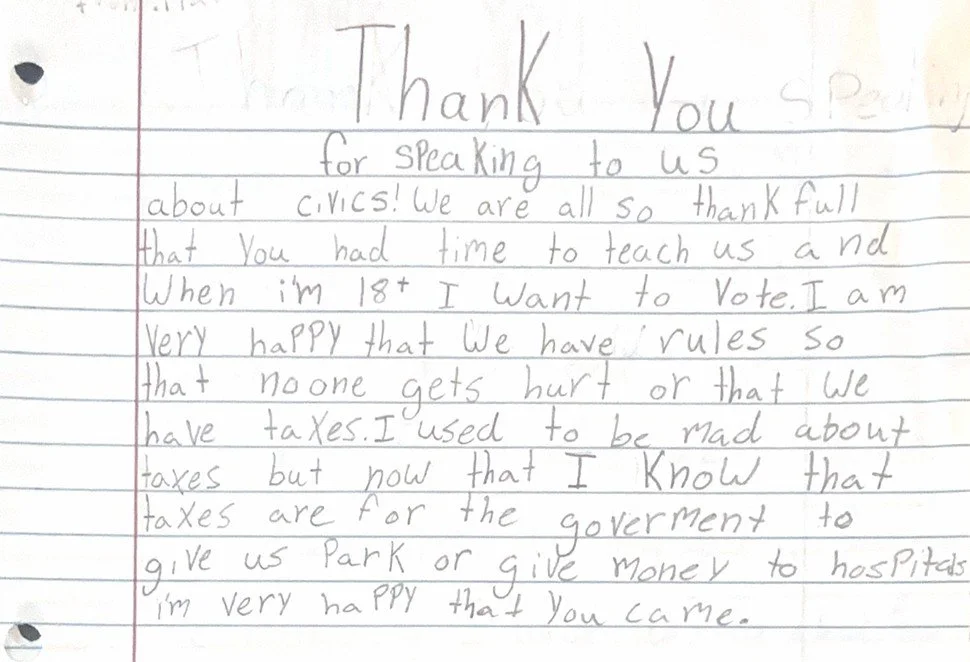 Thank You
for speaking to us
about civics! We are all so thankfull
that you had time to teach us and
When i'm 18+ I want to vote. I am
very happy that we have rules so
that no one gets hurt or that we
have taxes. I used to be mad about
taxes but now that I know that
taxes are for the goverment to
give us park or give money to hospitals
i'm very happy that you came.